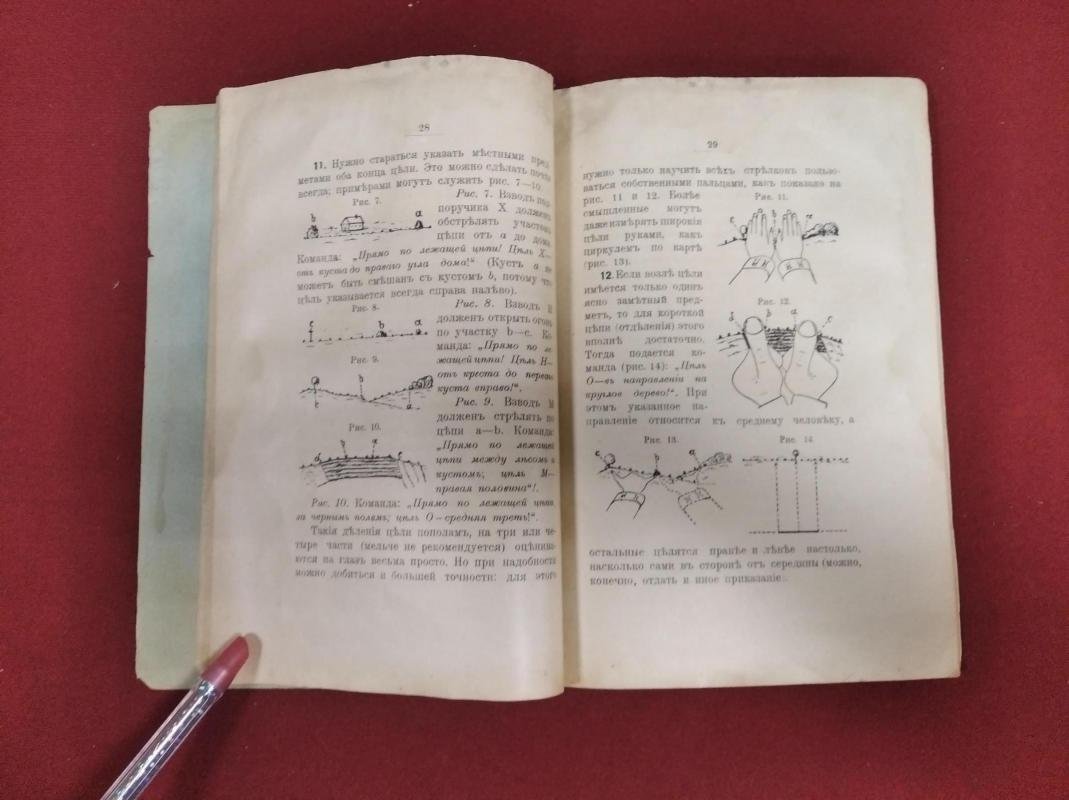 28
11. Нужно стараться указать мѣстными пред-
метами оба конца цѣли. Это можно сдѣлать почти
всегда; примѣрами могутъ служить рис. 7—10.
Рис. 7.
Рис. 7. Взводъ
поручика X долженъ
обстрѣлять участокъ
цѣпи отъ a до дома.
b
a
Команда: „Прямо по лежащей цѣпи! Цѣль X—
отъ куста до праваго угла дома!“ (Кустъ a не
можетъ быть смѣшан съ кустомъ b, потому что
цѣль указывается всегда справа налѣво).
Рис. 8.
Рис. 8. Взводъ Н
долженъ открыть огонь
по участку b—c. Ко-
манда: „Прямо по ле-
жащей цѣпи! Цѣль Н—
отъ креста до перваго
куста вправо!“.
c
b
a
Рис. 9.
Рис. 9. Взводъ М
долженъ стрѣлять по
цѣпи a—b. Команда:
„Прямо по лежащей
цѣпи между лѣсомъ и
кустомъ; цѣль М—
правая половина“!.
b
c
a
Рис. 10.
b
a
Рис. 10. Команда: „Прямо по лежащей цѣпи
за чернымъ полемъ; цѣль О—средняя треть!“.
Такія дѣленія цѣли пополамъ, на три или че-
тыре части (мельче не рекомендуется) оцѣнива-
ются на глазъ весьма просто. Но при надобности
можно добиться и большей точности: для этого
29
нужно только научить всѣхъ стрѣлковъ пользо-
ваться собственными пальцами, какъ показано на
рис. 11 и 12. Болѣе
смышленные могутъ
даже измѣрять широкія
цѣли руками, какъ
циркулемъ по картѣ
(рис. 13).
Рис. 11.
12. Если возлѣ цѣли
имѣется только одинъ
ясно замѣтный пред-
метъ, то для короткой
цѣпи (отдѣленія) этого
вполнѣ достаточно.
Тогда подается ко-
манда (рис. 14): „Цѣль
О—въ направленіи на
круглое дерево!“. При
этомъ указанное на-
правленіе относится къ среднему человѣку, а
Рис. 12.
b
a
Рис. 13.
Рис. 14
остальные цѣлятся правѣе и лѣвѣе настолько,
насколько сами въ сторонѣ отъ середины (можно,
конечно, отдать и иное приказаніе.